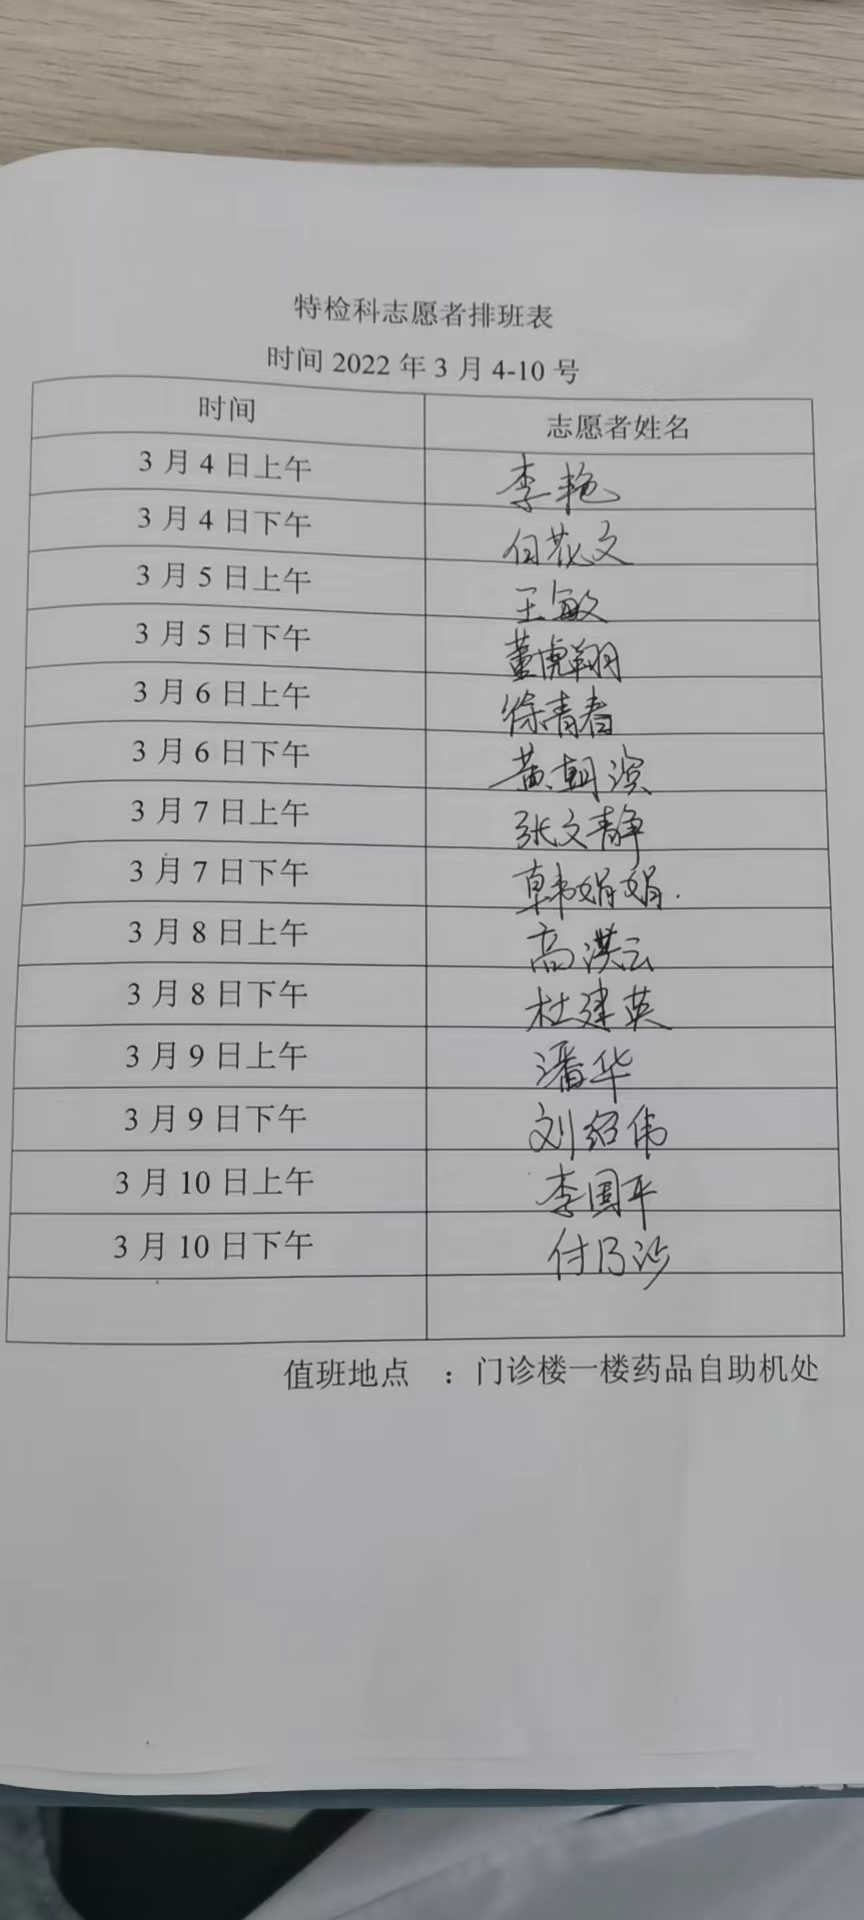 特检科志愿者排班表
时间 2022 年 3 月 4-10 号
时间 志愿者姓名
3 月 4 日上午 李艳
3 月 4 日下午 白花文
3 月 5 日上午 王敏
3 月 5 日下午 董虎翔
3 月 6 日上午 徐青春
3 月 6 日下午 黄朝滨
3 月 7 日上午 张文静
3 月 7 日下午 韩娟娟.
3 月 8 日上午 高洪云
3 月 8 日下午 杜建英
3 月 9 日上午 潘华
3 月 9 日下午 刘绍伟
3 月 10 日上午 李国平
3 月 10 日下午
值班地点 ：门诊楼一楼药品自助机处